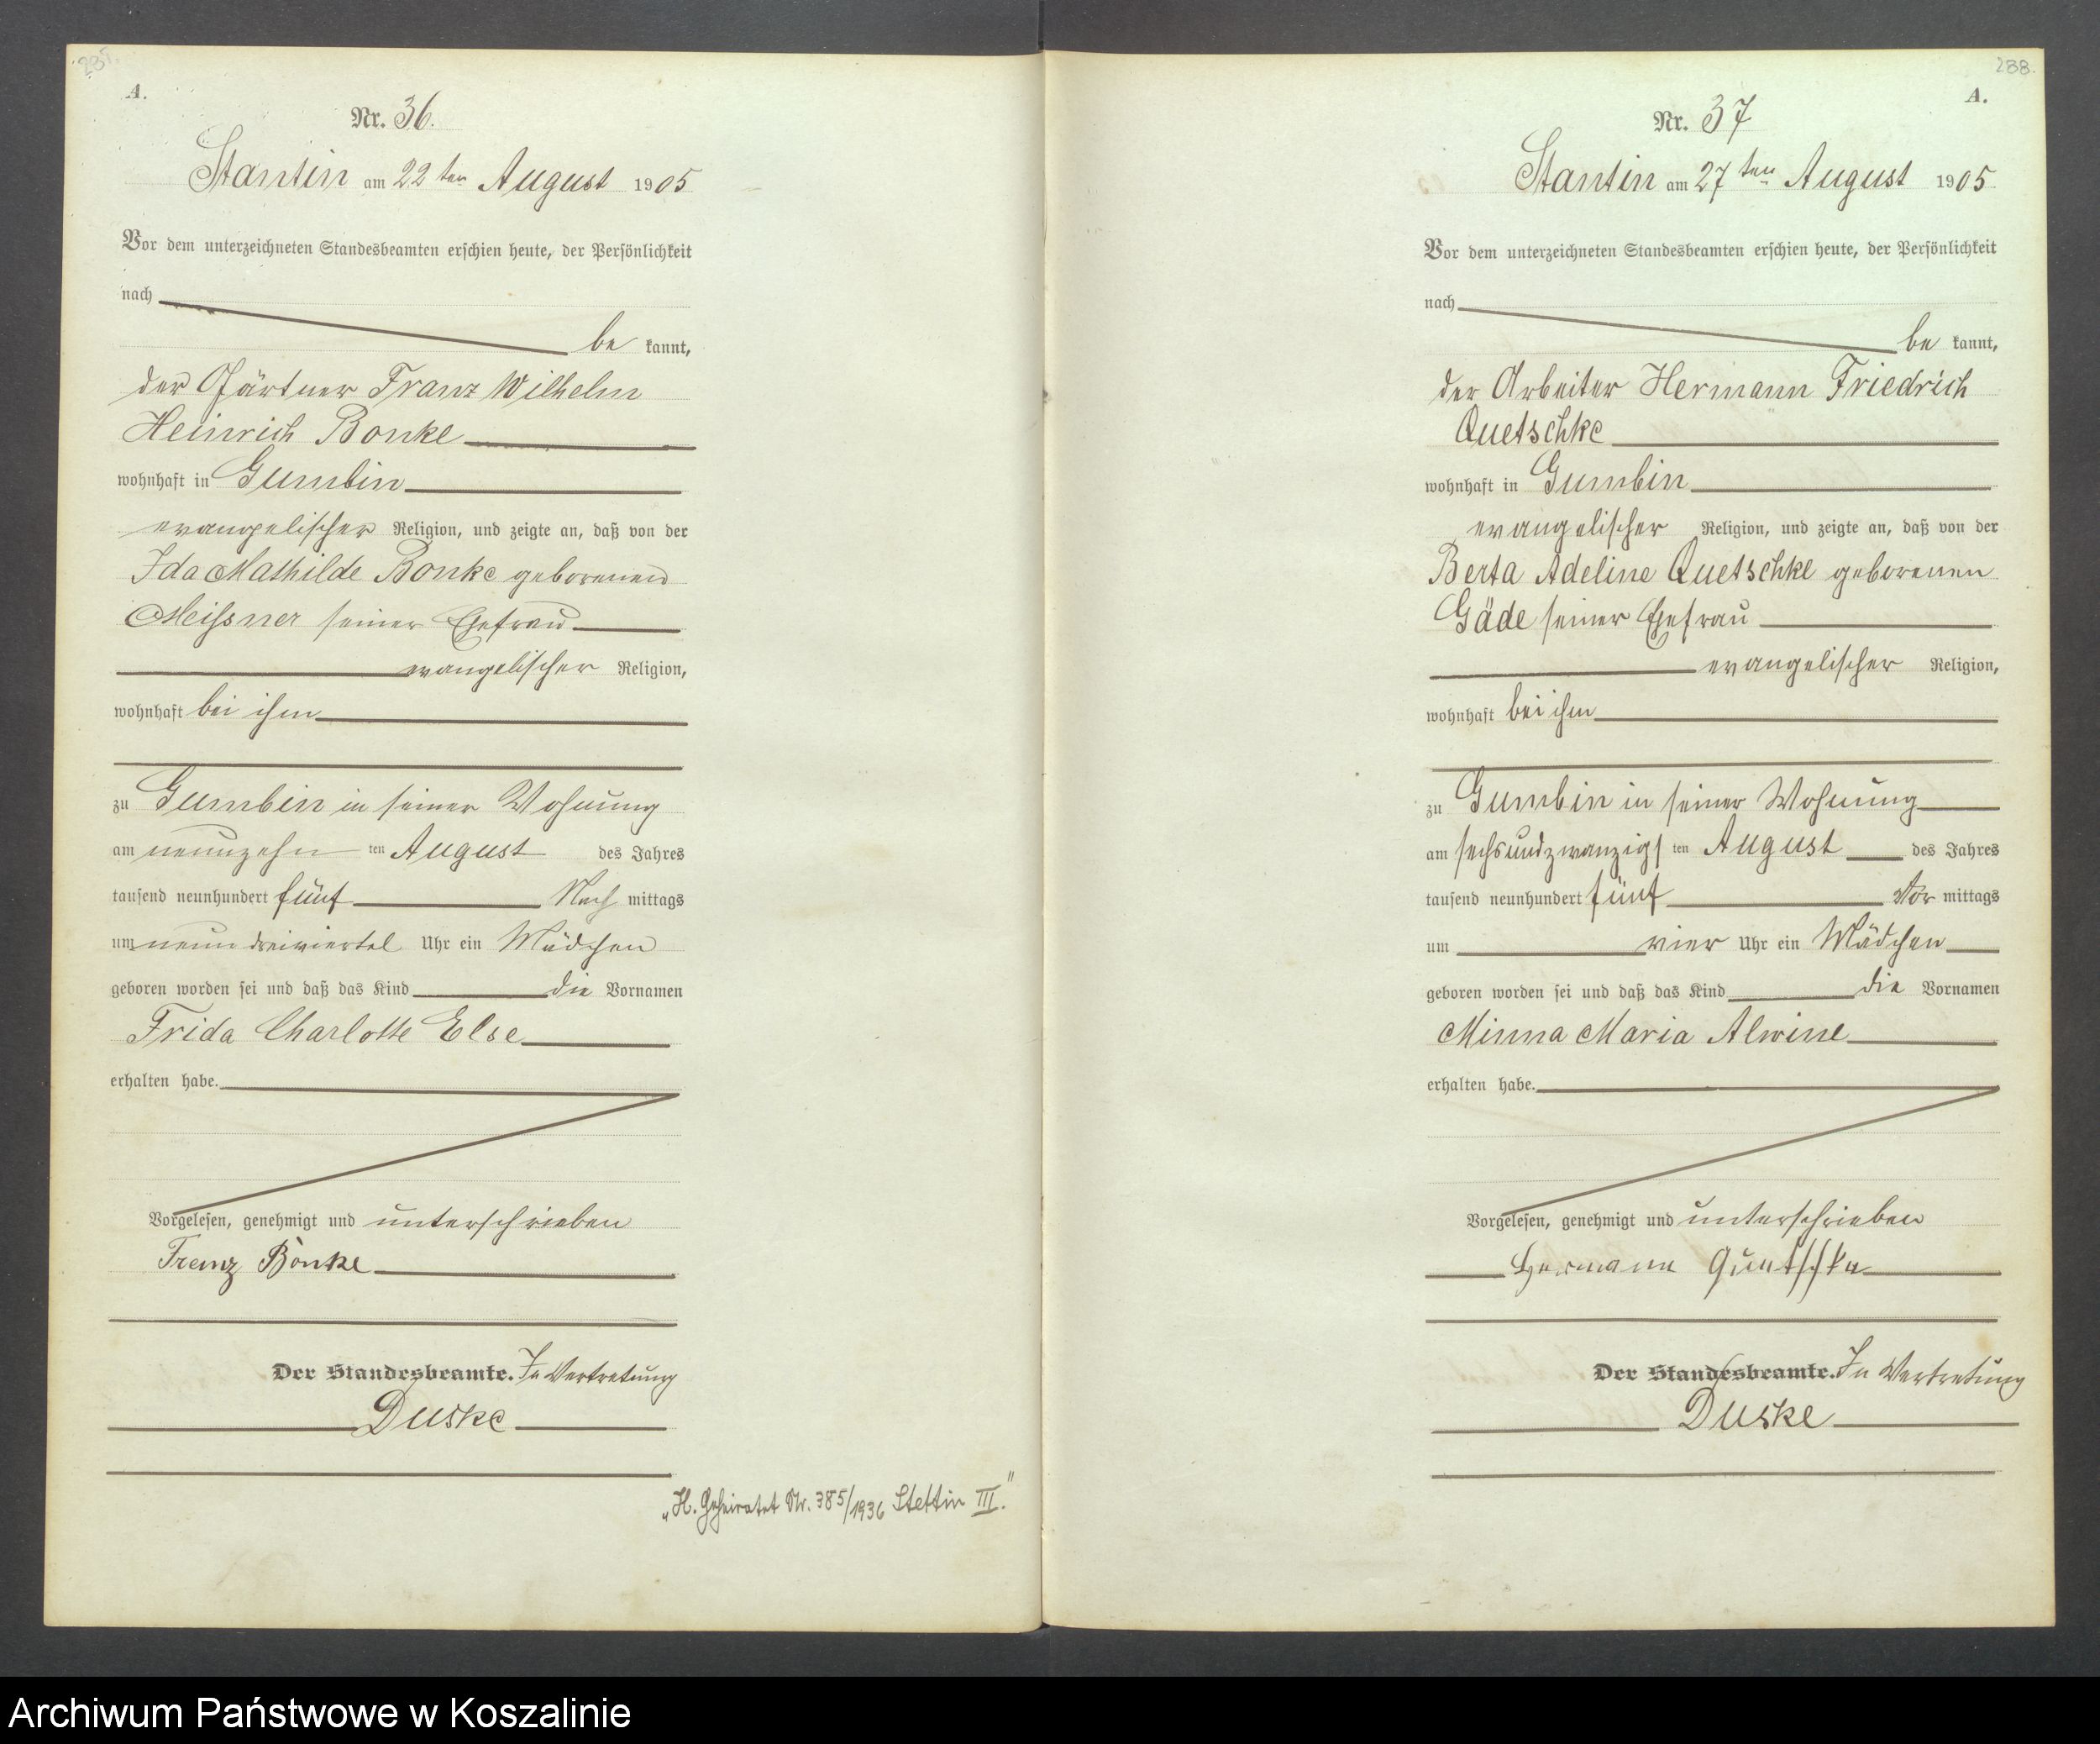 A.
Nr. 36.
Stantin am 22ten August 1905
Vor dem unterzeichneten Standesbeamten erschien heute, der Persönlichkeit
nach
be kannt,
der Gärtner Franz Wilhelm
Heinrich Bonke
wohnhaft in Gumbin
evangelischer Religion, und zeigte an, daß von der
Ida Mathilde Bonke geborenen
Meissner seiner Ehefrau
evangelischer Religion,
wohnhaft bei ihm
zu Gumbin in seiner Wohnung
am neunzehn ten August des Jahres
tausend neunhundert fünf Nach mittags
um neun dreiviertel Uhr ein Mädchen
geboren worden sei und daß das Kind die Vornamen
Frida Charlotte Else
erhalten habe.
Vorgelesen, genehmigt und unterschrieben
Franz Bonke
Der Standesbeamte. In Vertretung
Duske
„H. Geheiratet Nr. 385/1936 Stettin III."
288.
A.
Nr. 37
Stantin am 27ten August 1905
Vor dem unterzeichneten Standesbeamten erschien heute, der Persönlichkeit
nach
be kannt,
der Arbeiter Hermann Friedrich
Quetschke
wohnhaft in Gumbin
evangelischer Religion, und zeigte an, daß von der
Berta Adeline Quetschke geborenen
Gäde seiner Ehefrau
evangelischer Religion,
wohnhaft bei ihm
zu Gumbin in seiner Wohnung
am sechsundzwanzigs ten August des Jahres
tausend neunhundert fünf Vor mittags
um vier Uhr ein Mädchen
geboren worden sei und daß das Kind die Vornamen
Minna Maria Alwine
erhalten habe.
Vorgelesen, genehmigt und unterschrieben
Hermann Quetschke
Der Standesbeamte. In Vertretung
Duske
Archiwum Państwowe w Koszalinie